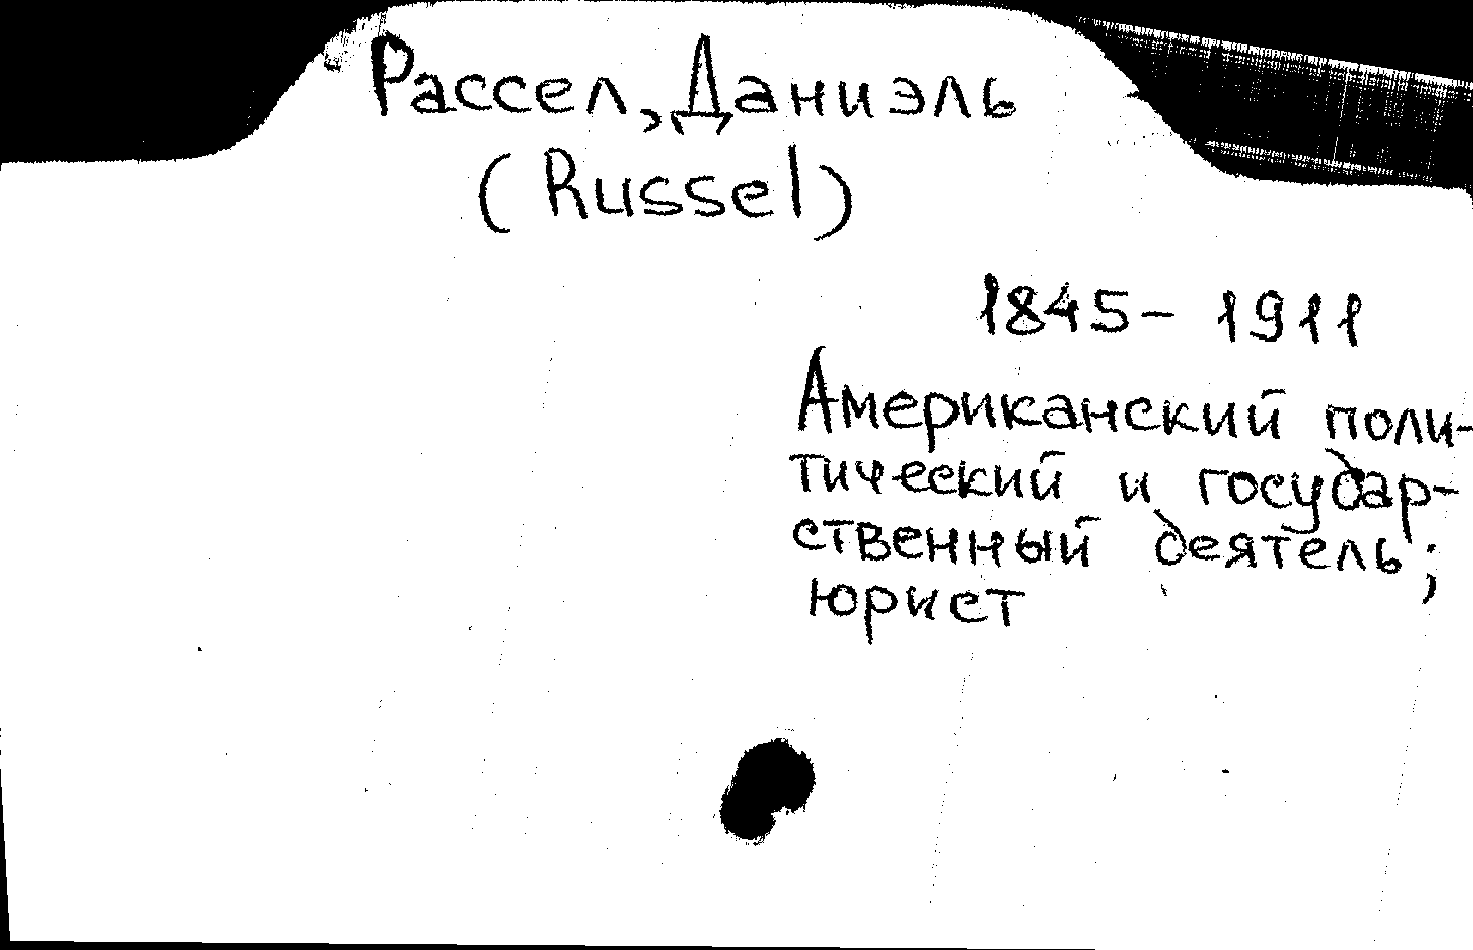 Рассел, Даниэль
(Russel)
1845 - 1911
Американский поли-
тический и государ-
ственный деятель;
юрист